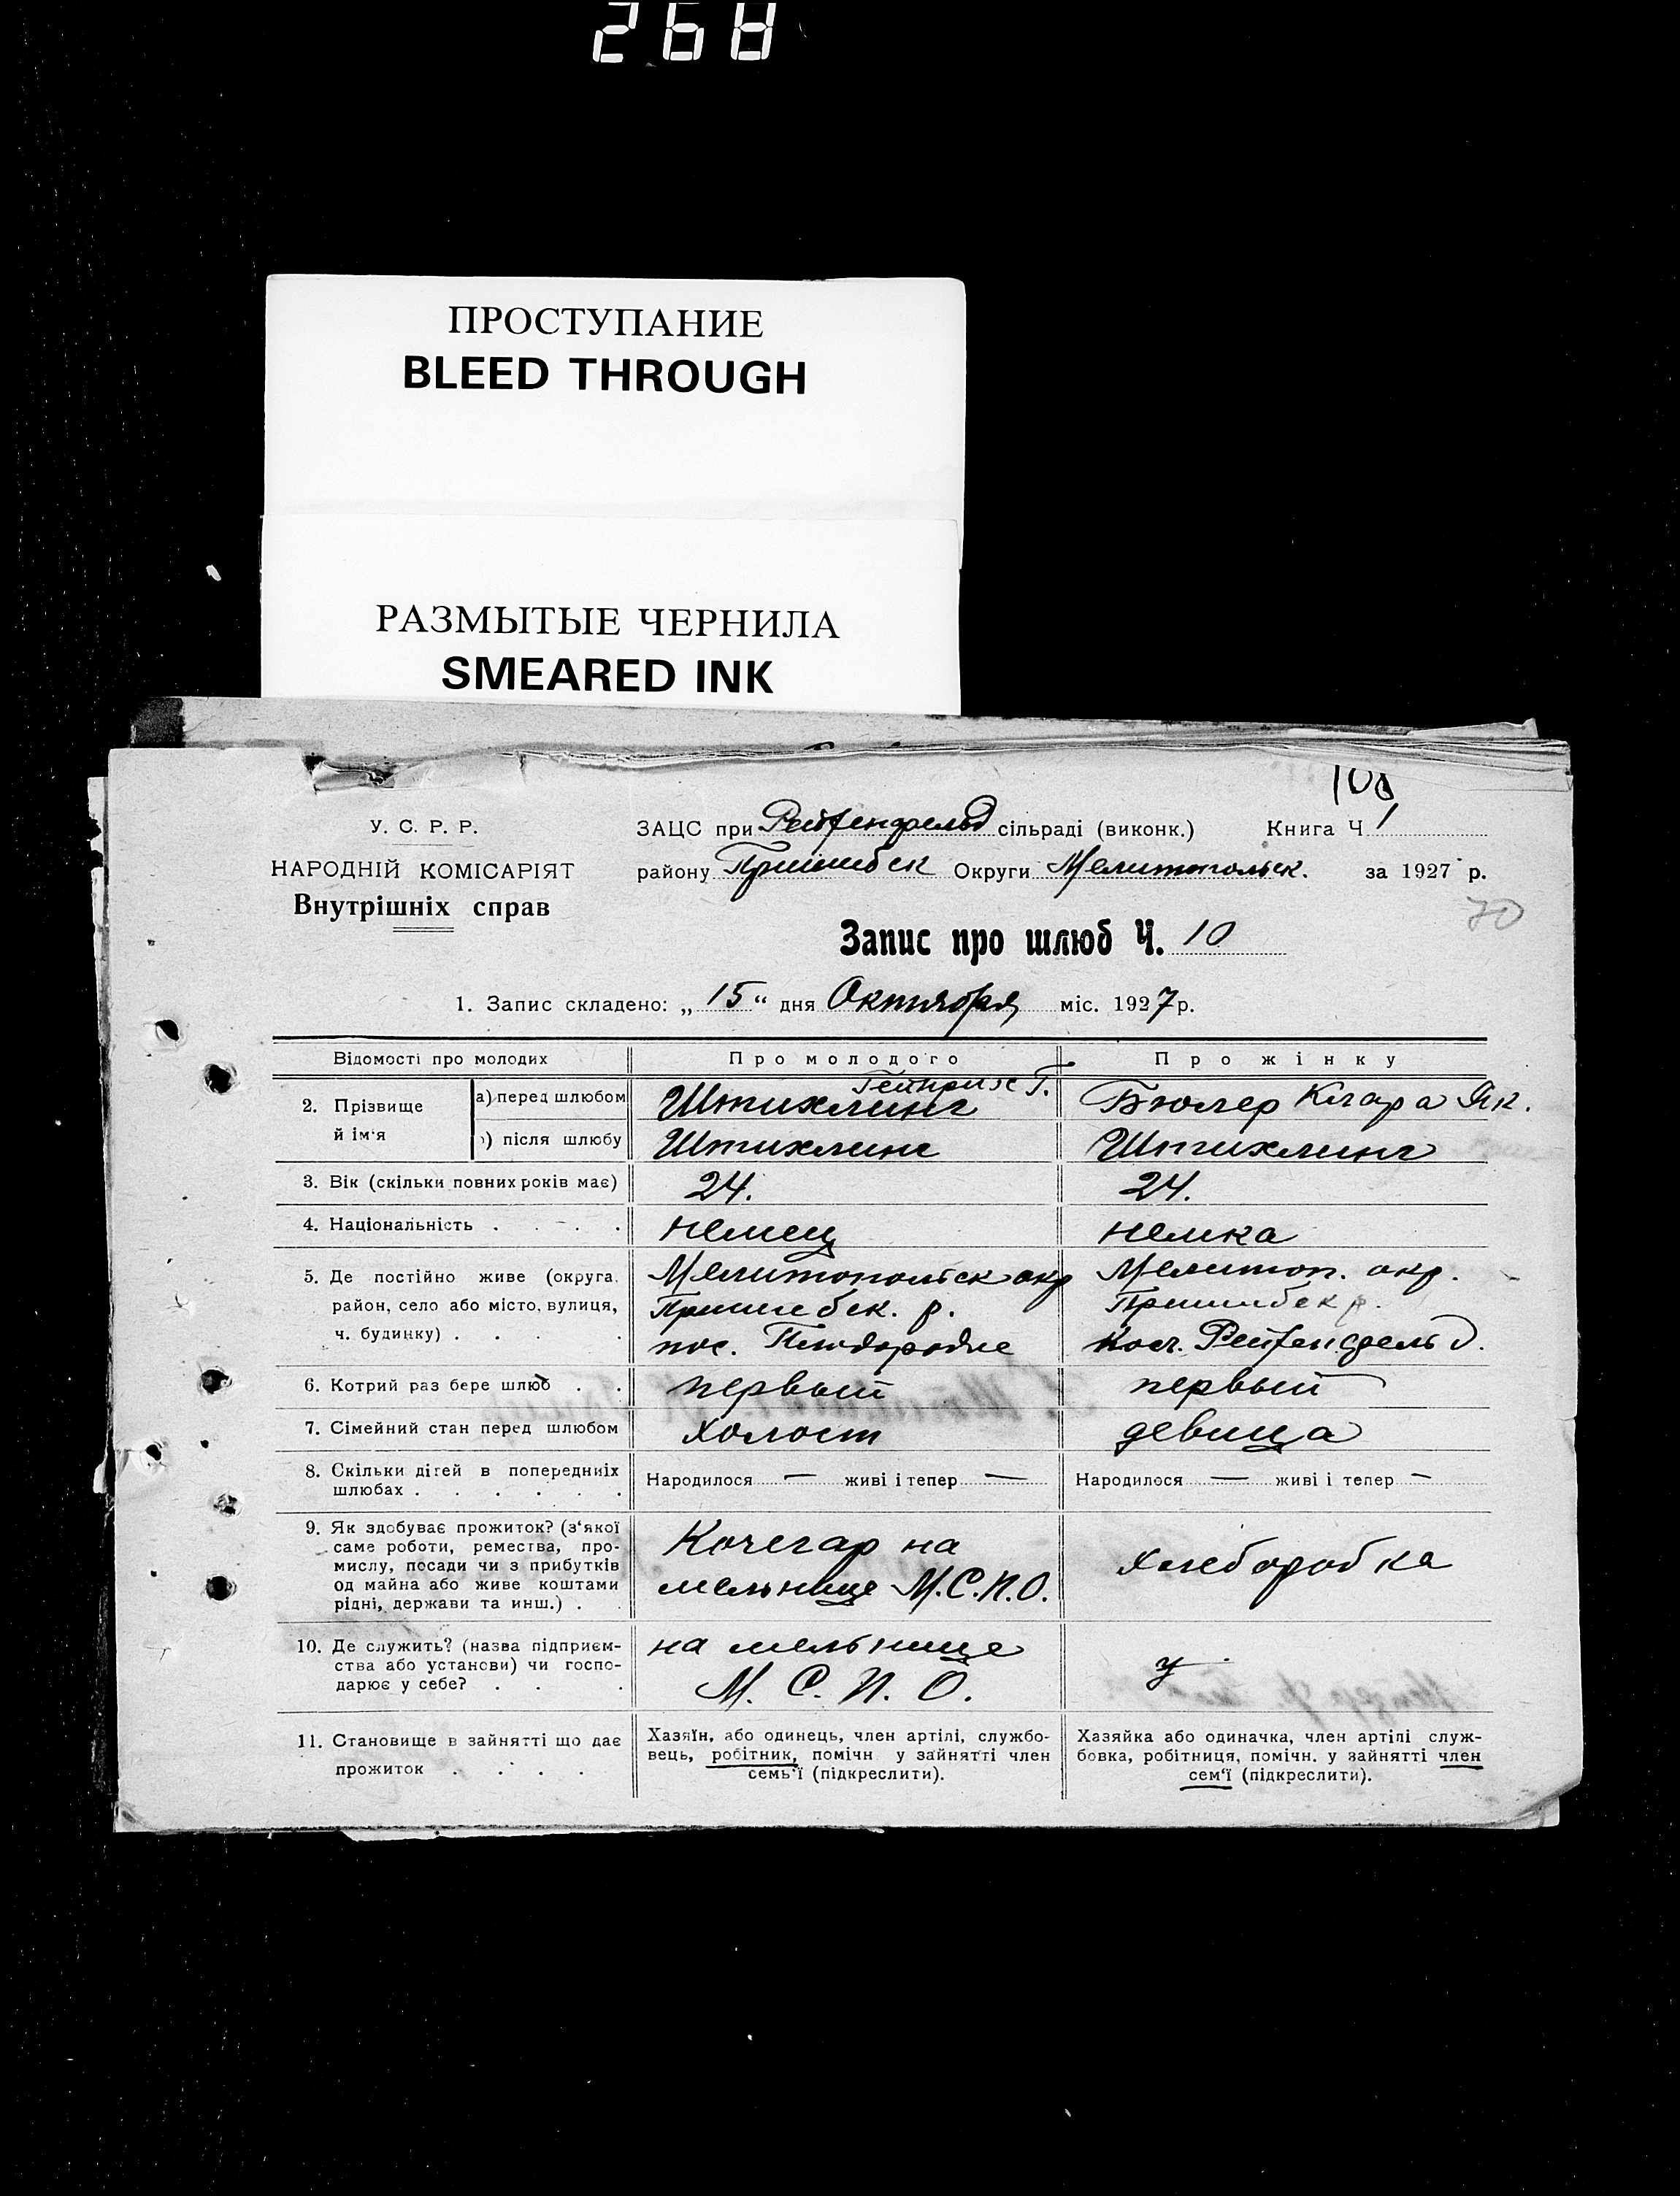 268
ПРОСТУПАНИЕ
BLEED THROUGH
РАЗМЫТЫЕ ЧЕРНИЛА
SMEARED INK
У. С. Р. Р.
НАРОДНІЙ КОМІСАРІЯТ
Внутрішніх справ
ЗАЦС при Рейхенфельд сільраді (виконк.) Книга Ч 1
району Пришибск Округи Мелитопольск. за 1927 р.
70
Запис про шлюб Ч. 10
1. Запис складено: „ 15 “ дня Октября міс. 1927 р.
Відомості про молодих Про молодого Про жінку
2. Прізвище й ім'я
а) перед шлюбом Штихлинг Гейнрих Г. Бюлер Клара Як.
) після шлюбу Штихлинг Штихлинг
3. Вік (скільки повних років має) 24. 24.
4. Національність . . . . . немец немка
5. Де постійно живе (округа, Мелитопольск окр Мелитоп. окр.
район, село або місто, вулиця, Пришибск. р. Пришибск р.
ч. будинку) . . . . пос. Плодородне кол. Рейхенфельд.
6. Котрий раз бере шлюб . . первый первый
7. Сімейний стан перед шлюбом холост девица
8. Скільки дітей в попередніх
шлюбах . . . . . . Народилося — живі і тепер — Народилося — живі і тепер —
9. Як здобуває прожиток? (з'якої
саме роботи, ремества, про-
мислу, посади чи з прибутків
од майна або живе коштами
рідні, держави та инш.) . .
Кочегар на
мельнице М.С.П.О.
хлеборобка
10. Де служить? (назва підприєм-
ства або установи) чи госпо-
дарює у себе? . . .
на мельнице
М. С. П. О.
11. Становище в зайнятті що дає
прожиток . . . .
Хазяїн, або одинець, член артілі, службо-
вець, робітник, помічн у зайнятті член
семь'ї (підкреслити).
Хазяйка або одиначка, член артілі служ-
бовка, робітниця, помічн. у зайнятті член
сем'ї (підкреслити).